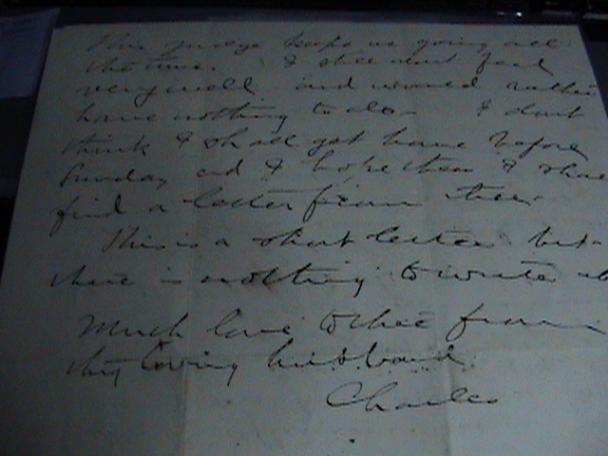 This judge keeps us going all
the time. I still dont feel
very well and would rather
have nothing to do. I dont
think I shall get home before
Sunday and I hope then I shall
find a letter from thee.
This is a short letter but
there is nothing to write
Much love to thee from
thy loving husband
Charles